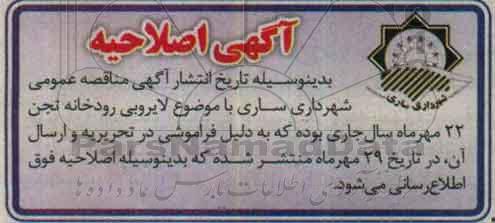 آگهی اصلاحیه
شهرداری ساری
بدینوسیله تاریخ انتشار آگهی مناقصه عمومی
شهرداری ساری با موضوع لایروبی رودخانه تجن
۲۲ مهرماه سال جاری بوده که به دلیل فراموشی در تحریریه و ارسال
آن، در تاریخ ۲۹ مهرماه منتشر شده که بدینوسیله اصلاحیه فوق
اطلاع رسانی می‌شود.
ParsNamadData